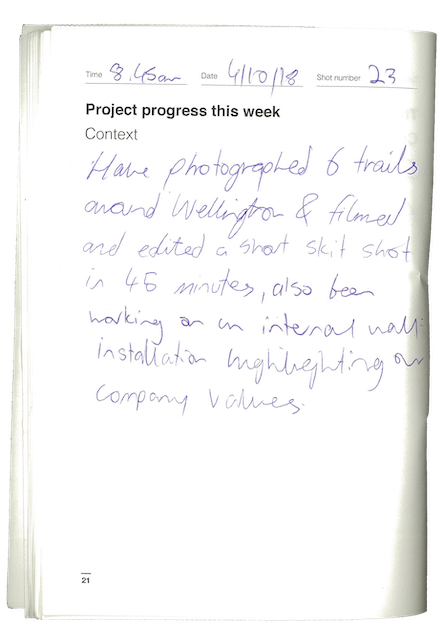 Time 8.45am Date 4/10/18 Shot number 23
Project progress this week
Context
Have photographed 6 trails
around Wellington & filmed
and edited a short skit shot
in 45 minutes, also been
working on an internal wall
installation highlighting our
company values.
21